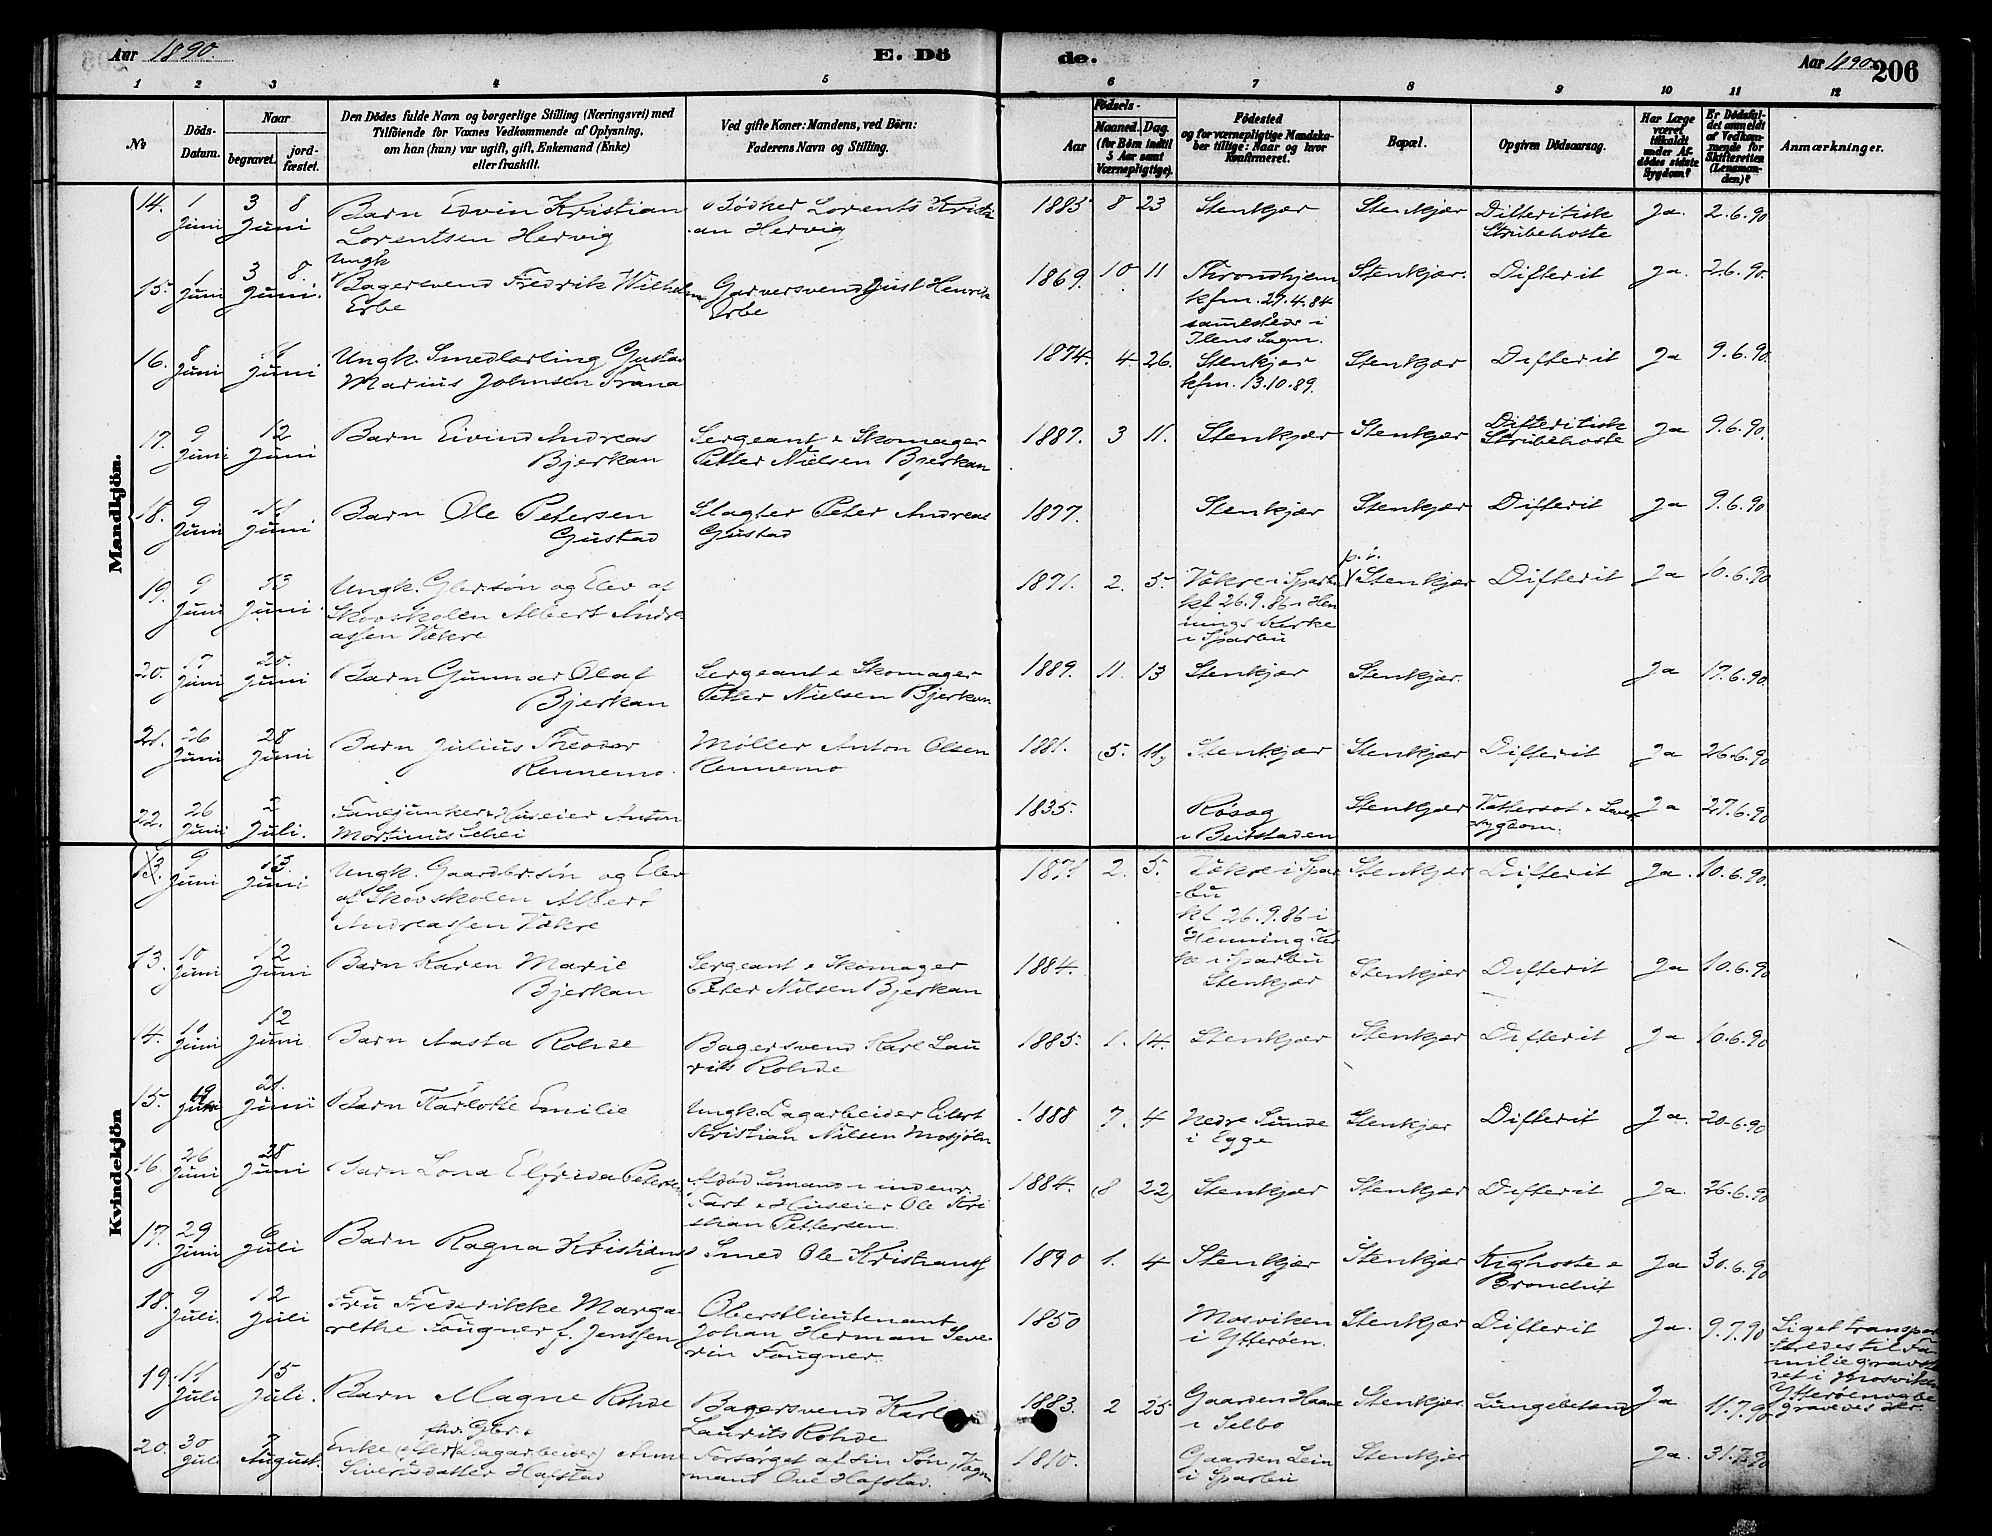 Aar 1890. E. Dö de. Aar 1890. 206
1 2 3 4 5 6 7 8 9 10 11 12
No
Döds-Datum.
Naar begravet. jordfæstet.
Den Dödes fulde Navn og borgerlige Stilling (Næringsvei) med
Tilföiende for Voxnes Vedkommende af Oplysning,
om han (hun) var ugift, gift, Enkemand (Enke)
eller fraskilt.
Ved gifte Koner: Mandens, ved Börn:
Faderens Navn og Stilling.
Födsels-
Aar Maaned. Dag.
(for Börn indtil
5 Aar samt
Værnepligtige).
Födested
og for værnepligtige Mandska-
ber tillige: Naar og hvor
konfirmeret.
Bopæl.
Opgiven Dödsaarsag.
Har Læge
været
tilkaldt
under Af-
dödes sidste
Sygdom?
Er Dödsfal-
det anmeldt
af Vedkom-
mende for
Skifteretten
(Lensman-
den)?
Anmærkninger.
Mandkjön.
14. 1 Juni 3 8 Juni Barn Edvin Kristian Lorentsen Hervig Bödker Lorents Kristian Hervig 1885 8 23 Stenkjær Stenkjær Difteritisk Strubehoste Ja. 2.6.90
15. 1 Juni 3 8. Juni. Ungk. Bagersvend Fredrik Wilhelm Erbe Garversvend Just Henrik Erbe 1869. 10. 11 Throndhjem kfm. 27.4.84 sammesteds i Ilens Sogn. Stenkjær. Difterit Ja. 2.6.90.
16. 8 Juni 11 Juni Ungk. Smedlærling Gustav Marius Johnsen Trana 1874. 4. 26. Stenkjær kfm. 13.10.89. Stenkjær Difterit Ja 9.6.90.
17. 9 Juni 12 Juni Barn Eivind Andreas Bjerkan Sergeant & Skomager Petter Nielsen Bjerkan 1887. 3 11. Stenkjær Stenkjær Difteritisk Strubehoste Ja 9.6.90.
18. 9 Juni 11 Juni Barn Ole Petersen Gustad Slagter Peter Andreas Gustad 1877. Stenkjær Stenkjær Difterit Ja 9.6.90
19. 9 Juni 13 Juni. Ungk. Gbrsøn og Elev af Skovskolen Albert Andreassen Vækre 1871. 2. 5. Vækre i Sparbu kf 26.9.86 i Hennings Kirke i Sparbu p.t. Stenkjær Difterit Ja 10.6.90
20. 17 Juni 20. Juni Barn Gunnar Olaf Bjerkan Sergeant & Skomager Petter Nielsen Bjerkan 1889. 11. 13 Stenkjær Stenkjær. Ja 17.6.90
21. 26 Juni 28 Juni Barn Julius Theodor Rennemo. Møller Anton Olsen Rennemo 1881. (5. 11) Stenkjær Stenkjær Difterit Ja 26.6.90
22. 26 Juni 2 Juli. Fanejunker & Huseier Anton Mortinus Schei 1835. Røsæg i Beitstaden Stenkjær Vattersot & Leversygdom. Ja 27.6.90
Kvindekjön
13. 9 Juni 13. Juni Ungk. Gaardbrsøn og Elev af Skovskolen Albert Andreassen Vækre 1871 2. 5. Vækre i Sparbu kf 26.9.86 i Henning Kirke i Sparbu Stenkjær Difterit Ja. 10.6.90.
13. 10 Juni 12 Juni Barn Karen Marie Bjerkan Sergeant & Skomager Peter Nilsen Bjerkan 1884. Stenkjær Stenkjær Difterit Ja 10.6.90
14. 10 Juni 12 Juni Barn Aasta Rohde Bagersvend Karl Laurits Rohde 1885. 1. 14. Stenkjær Stenkjær Difterit Ja 10.6.90
15. 19 Juni 21. Juni Barn Karlotte Emilie Ungk. Dagarbeider Edert Kristian Nilsen Mosjøen 1888 7. 4 Nedre Sunde i Egge Stenkjær Difterit Ja. 20.6.90
16. 26 Juni 28 Juni Barn Lona Elfrida Petersen Afdød Sømand i indenr. Fart & Huseier Ole Kristian Pettersen 1884. (8 22) Stenkjær Stenkjær Difterit Ja. 26.6.90
17. 29 Juni 6 Juli Barn Ragna Kristiansf Smed Ole Kristiansf 1890 1. 4 Stenkjær Stenkjær Kighoste & Bronchit Ja 30.6.90
18. 9 Juli. 12 Juli Fru Frederikke Margarethe Fougner f. Jenssen Oberstlieutenant Johan Herman Severin Fougner. 1850 Mosviken i Ytterøen. Stenkjær Difterit Ja. 9.7.90 Liget transporteredes til Familiegravstedet i Mosviken Ytterøen og begravedes der.
19. 11 Juli 15 Juli. Barn Magne Rohde Bagersvend Karl Laurits Rohde 1883. 2 25 Gaarden Haave i Selbo Stenkjær Lungebetænd Ja 11.7.90
20. 30 Juli 7 August. Enke (efter fhv. Gbr. & Dagarbeider) Anne Siverusdatter Hafstad Forsørget af sin Søn, Vognmand Ove Hafstad. 1810. Gaarden Lein i Sparbu Stenkjær Ja. 31.7.90